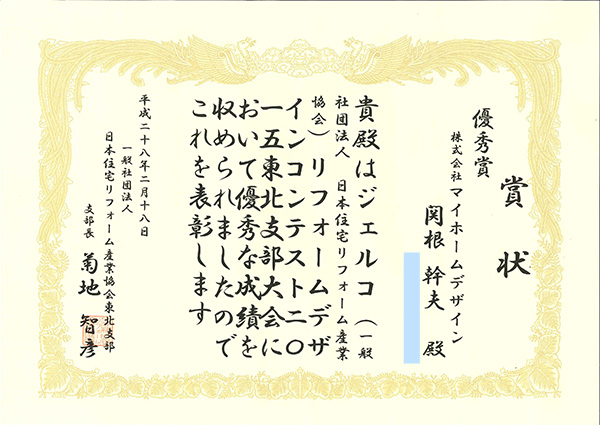 賞状
優秀賞
株式会社 マイホームデザイン
関根 幹夫 殿
貴殿はジェルコ(一般
社団法人 日本住宅リフォーム産業
協会)リフォームデザ
インコンテスト二〇
一五東北支部大会に
おいて優秀な成績を
収められましたので
これを表彰します
平成二十八年二月十八日
一般社団法人
日本住宅リフォーム産業協会東北支部
支部長 菊地 智彦